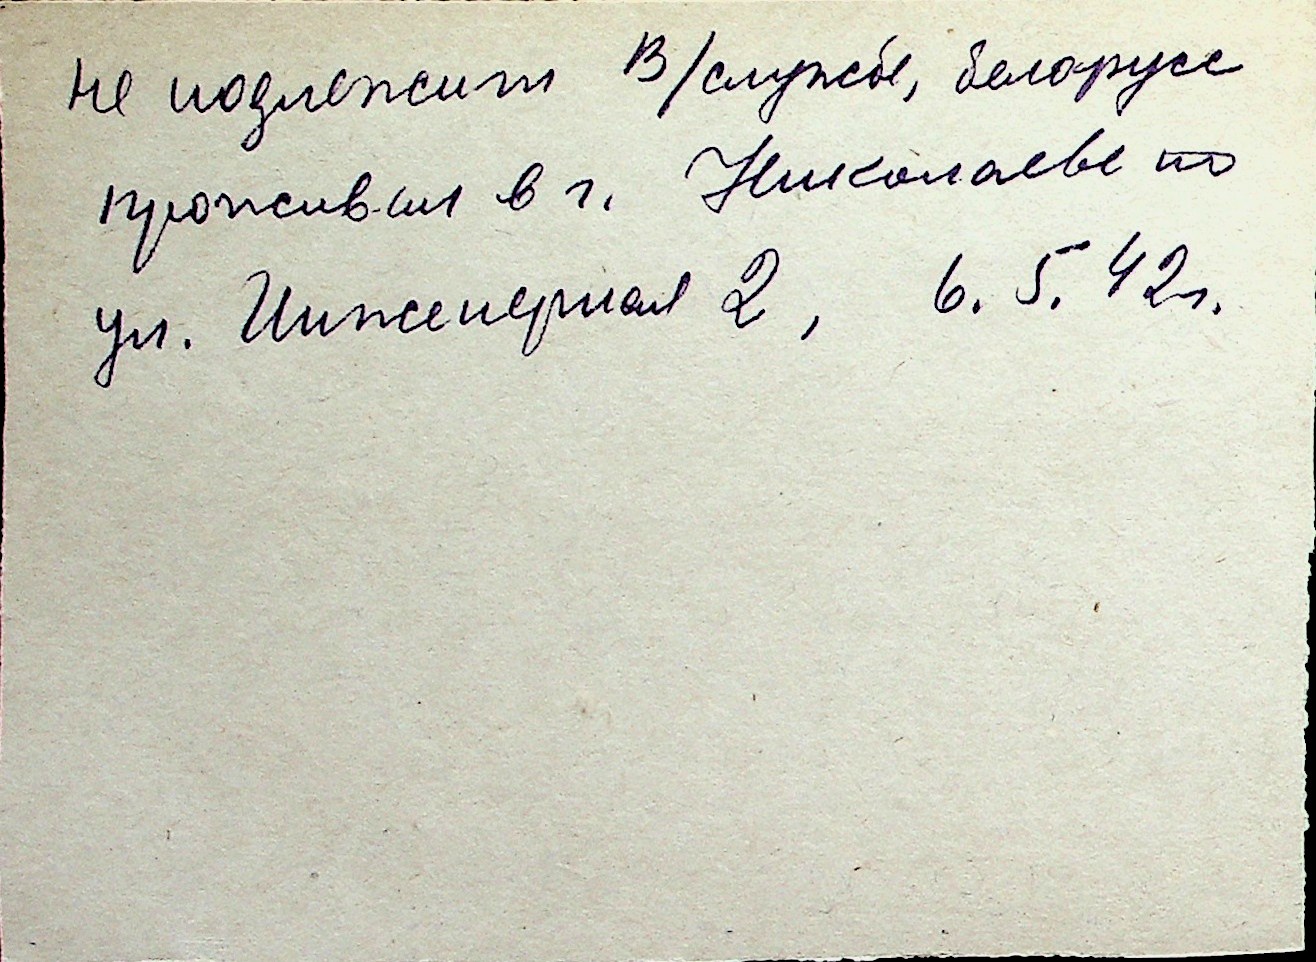 не подлежит В/службе, белорусс
проживал в г. Николаеве по
ул. Инженерная 2, 6. 5. 42г.